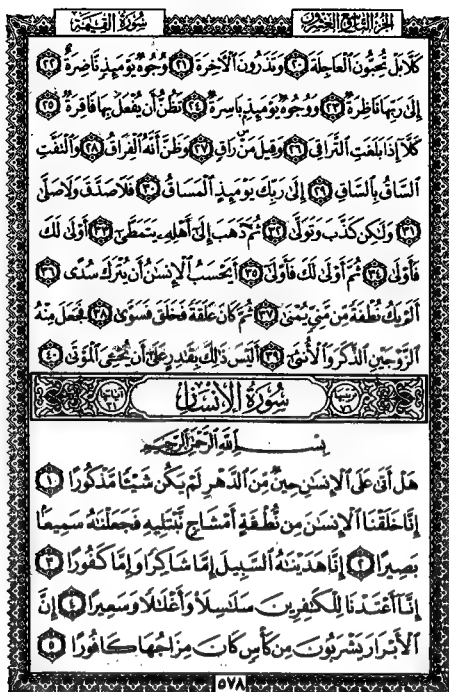 سُورَةُ القِيَامَة
الجزء التاسع والعشرون
كَلَّا بَلْ تُحِبُّونَ الْعَاجِلَةَ ٢٠ وَتَذَرُونَ الْآخِرَةَ ٢١ وُجُوهٌ يَوْمَئِذٍ نَّاضِرَةٌ ٢٢
إِلَىٰ رَبِّهَا نَاظِرَةٌ ٢٣ وَوُجُوهٌ يَوْمَئِذٍ بَاسِرَةٌ ٢٤ تَظُنُّ أَن يُفْعَلَ بِهَا فَاقِرَةٌ ٢٥
كَلَّا إِذَا بَلَغَتِ التَّرَاقِيَ ٢٦ وَقِيلَ مَنْ رَاقٍ ٢٧ وَظَنَّ أَنَّهُ الْفِرَاقُ ٢٨ وَالْتَفَّتِ
السَّاقُ بِالسَّاقِ ٢٩ إِلَىٰ رَبِّكَ يَوْمَئِذٍ الْمَسَاقُ ٣٠ فَلَا صَدَّقَ وَلَا صَلَّىٰ
٣١ وَلَٰكِن كَذَّبَ وَتَوَلَّىٰ ٣٢ ثُمَّ ذَهَبَ إِلَىٰ أَهْلِهِ يَتَمَطَّىٰ ٣٣ أَوْلَىٰ لَكَ
فَأَوْلَىٰ ٣٤ ثُمَّ أَوْلَىٰ لَكَ فَأَوْلَىٰ ٣٥ أَيَحْسَبُ الْإِنسَٰنُ أَن يُتْرَكَ سُدًى ٣٦
أَلَمْ يَكُ نُطْفَةً مِّن مَّنِيٍّ يُمْنَىٰ ٣٧ ثُمَّ كَانَ عَلَقَةً فَخَلَقَ فَسَوَّىٰ ٣٨ فَجَعَلَ مِنْهُ
الزَّوْجَيْنِ الذَّكَرَ وَالْأُنثَىٰ ٣٩ أَلَيْسَ ذَٰلِكَ بِقَٰدِرٍ عَلَىٰ أَن يُحْـِۧيَ الْمَوْتَىٰ ٤٠
ترتيبها ٧٦ سُورَةُ الإِنسَان آياتها ٣١
بِسْمِ اللَّهِ الرَّحْمَٰنِ الرَّحِيمِ
هَلْ أَتَىٰ عَلَى الْإِنسَٰنِ حِينٌ مِّنَ الدَّهْرِ لَمْ يَكُن شَيْـًٔا مَّذْكُورًا ١
إِنَّا خَلَقْنَا الْإِنسَٰنَ مِن نُّطْفَةٍ أَمْشَاجٍ نَّبْتَلِيهِ فَجَعَلْنَٰهُ سَمِيعًا
بَصِيرًا ٢ إِنَّا هَدَيْنَٰهُ السَّبِيلَ إِمَّا شَاكِرًا وَإِمَّا كَفُورًا ٣
إِنَّا أَعْتَدْنَا لِلْكَٰفِرِينَ سَلَٰسِلَا۟ وَأَغْلَٰلًا وَسَعِيرًا ٤ إِنَّ
الْأَبْرَارَ يَشْرَبُونَ مِن كَأْسٍ كَانَ مِزَاجُهَا كَافُورًا ٥
٥٧٨